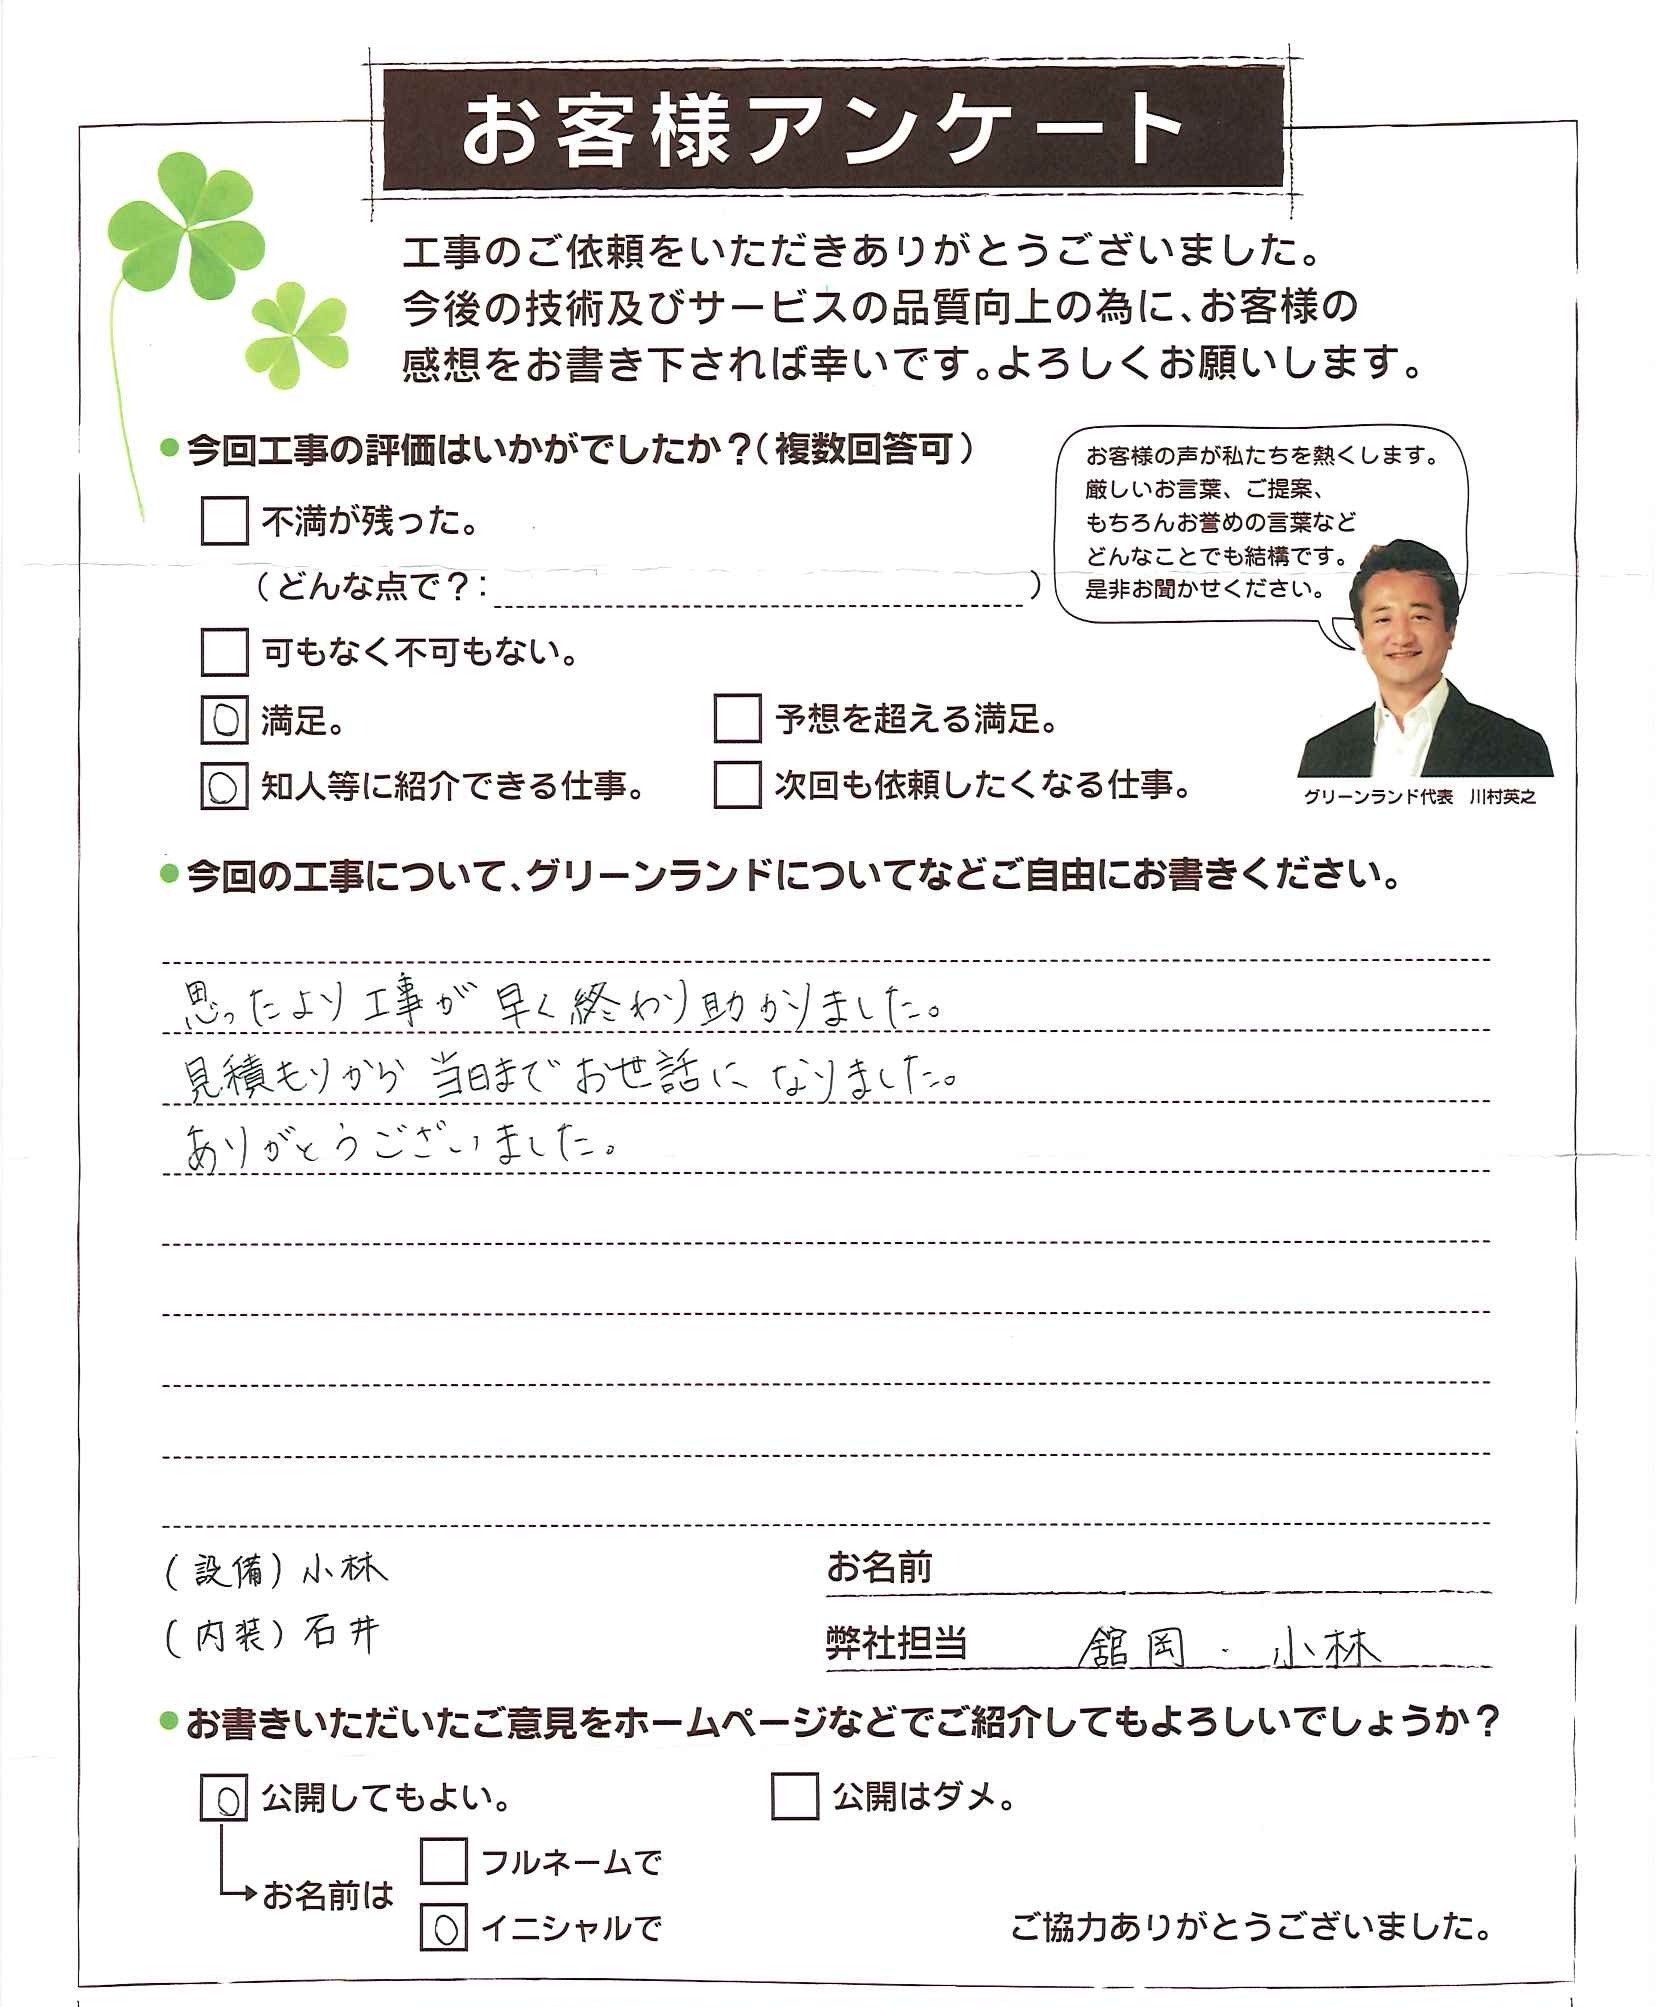 お客様アンケート
工事のご依頼をいただきありがとうございました。
今後の技術及びサービスの品質向上の為に、お客様の
感想をお書き下されば幸いです。よろしくお願いします。
●今回工事の評価はいかがでしたか？（複数回答可）
不満が残った。
（どんな点で？：　　　）
可もなく不可もない。
○ 満足。
予想を超える満足。
○ 知人等に紹介できる仕事。
次回も依頼したくなる仕事。
お客様の声が私たちを熱くします。
厳しいお言葉、ご提案、
もちろんお誉めの言葉など
どんなことでも結構です。
是非お聞かせください。
グリーンランド代表　川村英之
●今回の工事について、グリーンランドについてなどご自由にお書きください。
思ったより工事が早く終わり助かりました。
見積もりから当日までお世話になりました。
ありがとうございました。
(設備) 小林
(内装) 石井
お名前
弊社担当　舘岡・小林
●お書きいただいたご意見をホームページなどでご紹介してもよろしいでしょうか？
○ 公開してもよい。
公開はダメ。
お名前は
フルネームで
○ イニシャルで
ご協力ありがとうございました。